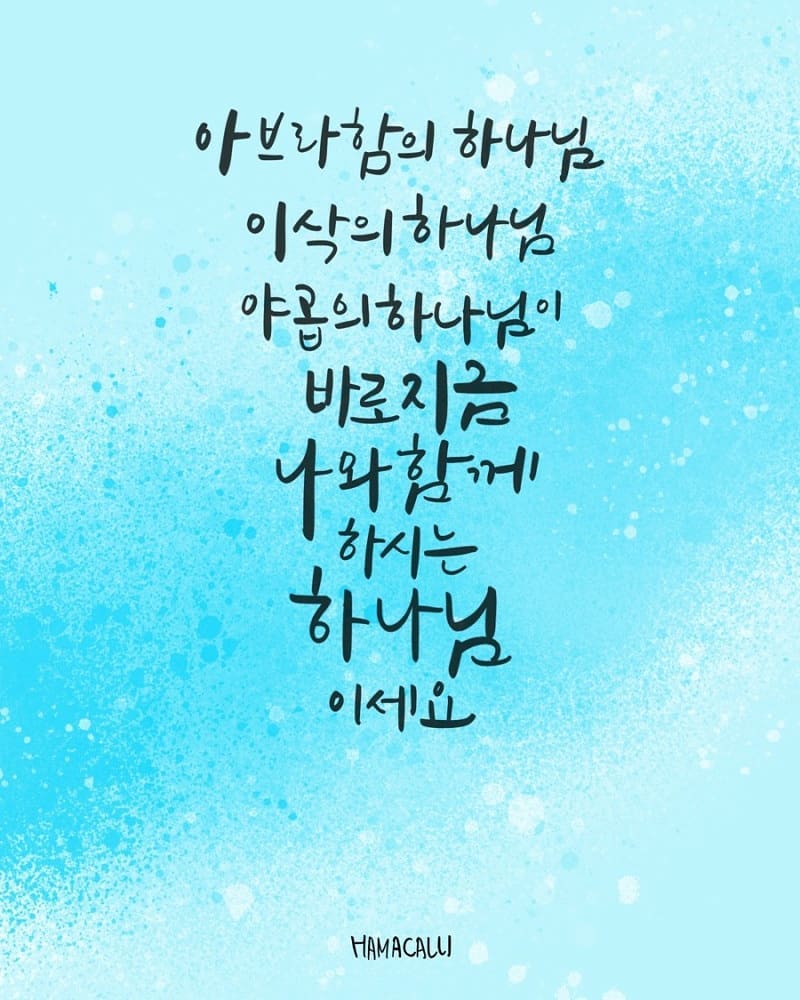 아브라함의 하나님
이삭의 하나님
야곱의 하나님이
바로 지금
나와 함께
하시는
하나님
이세요
HAMACALLI